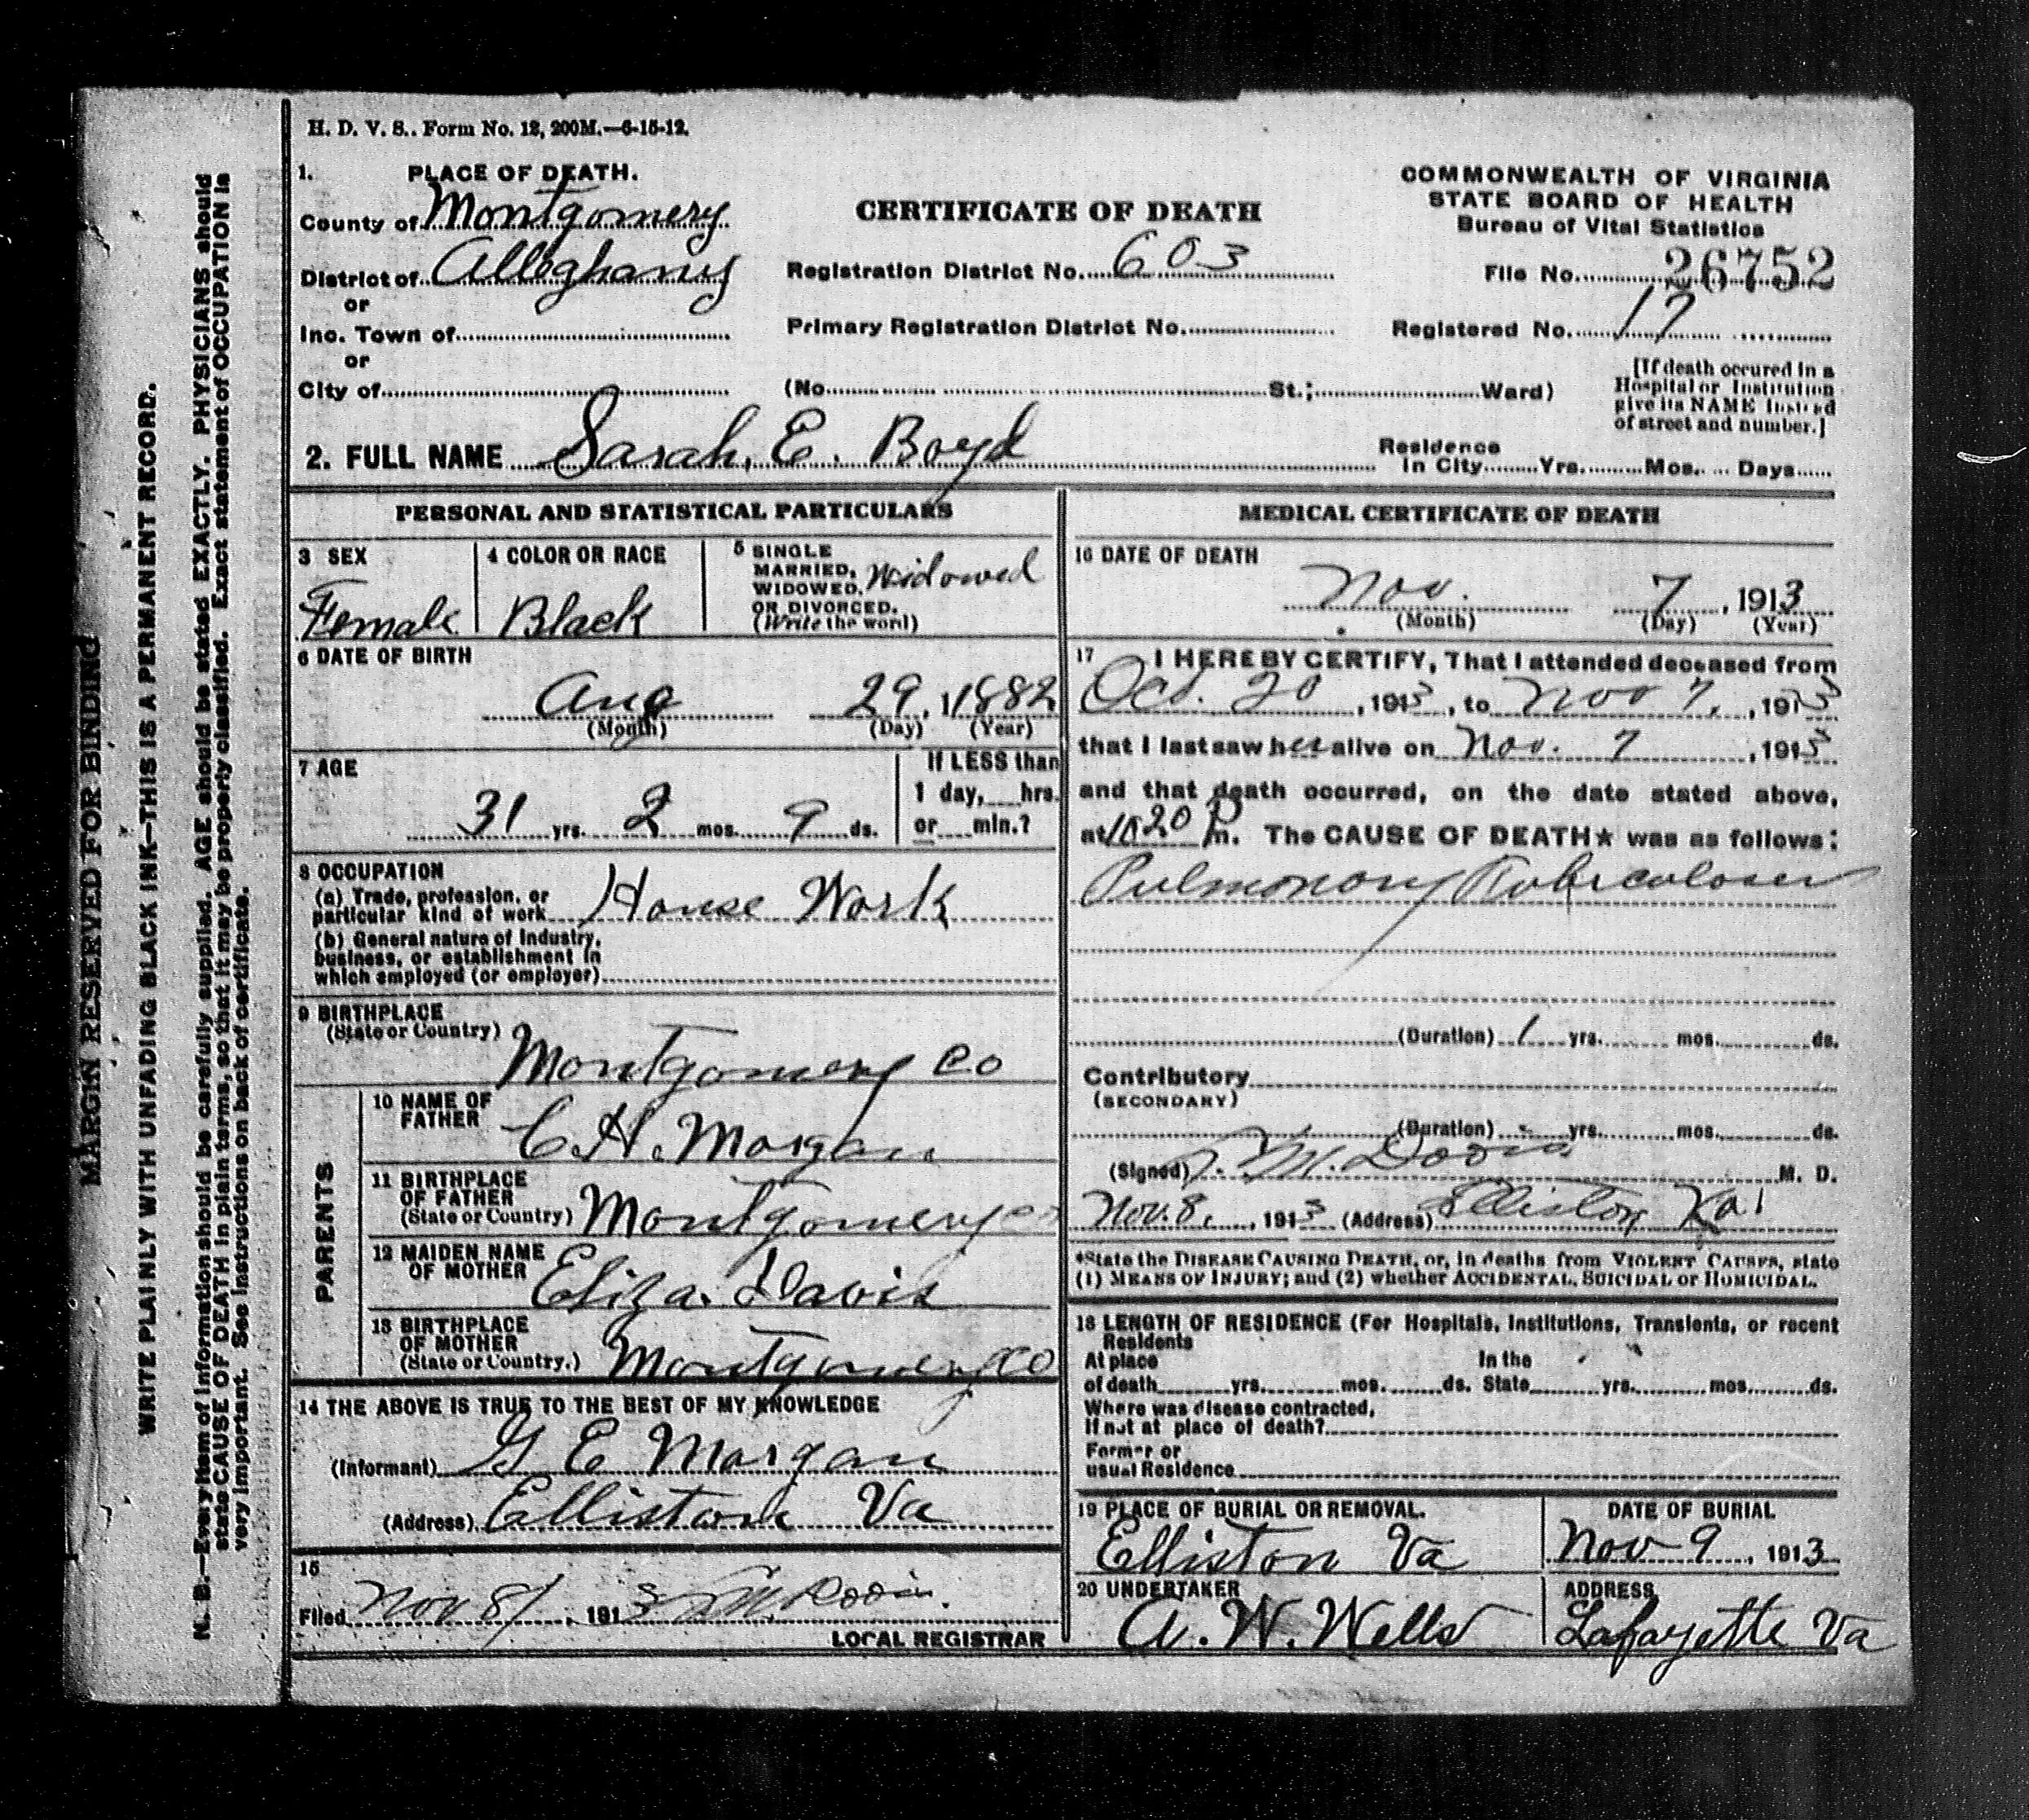 H. D. V. S.. Form No. 12, 200M.—6-15-12.
1. PLACE OF DEATH.
County of Montgomery
District of Alleghany
or
Inc. Town of
or
City of
CERTIFICATE OF DEATH
Registration District No. 603
Primary Registration District No.
(No. St.; Ward)
COMMONWEALTH OF VIRGINIA
STATE BOARD OF HEALTH
Bureau of Vital Statistics
File No. 26752
Registered No. 17
[If death occured in a
Hospital or Institution
give its NAME instead
of street and number.]
2. FULL NAME Sarah. E. Boyd
Residence
In City Yrs. Mos. Days
PERSONAL AND STATISTICAL PARTICULARS
3 SEX
Female
4 COLOR OR RACE
Black
5 SINGLE
MARRIED,
WIDOWED,
OR DIVORCED.
(Write the word)
Widowed
6 DATE OF BIRTH
Aug 29, 1882
(Month) (Day) (Year)
7 AGE
31 yrs. 2 mos. 9 ds.
If LESS than
1 day, hrs.
or min.?
8 OCCUPATION
(a) Trade, profession, or
particular kind of work House Work
(b) General nature of Industry,
business, or establishment in
which employed (or employer)
9 BIRTHPLACE
(State or Country)
Montgomery Co
PARENTS
10 NAME OF
FATHER
C. H. Morgan
11 BIRTHPLACE
OF FATHER
(State or Country) Montgomery Co
12 MAIDEN NAME
OF MOTHER
Eliza. Davis
13 BIRTHPLACE
OF MOTHER
(State or Country.) Montgomery Co
14 THE ABOVE IS TRUE TO THE BEST OF MY KNOWLEDGE
(Informant) G E Morgan
(Address) Elliston Va
15
Filed Nov 8, 1913
LOCAL REGISTRAR
MEDICAL CERTIFICATE OF DEATH
16 DATE OF DEATH
Nov. 7, 1913
(Month) (Day) (Year)
17 I HEREBY CERTIFY, That I attended deceased from
Oct. 20, 1913, to Nov 7, 1913
that I last saw her alive on Nov. 7, 1913
and that death occurred, on the date stated above,
at 10 20 Pm. The CAUSE OF DEATH★ was as follows:
Pulmonary Tuberculosis
(Duration) 1 yrs. mos. ds.
Contributory
(SECONDARY)
(Duration) yrs. mos. ds.
(Signed) M. D.
Nov. 8, 1913 (Address) Elliston Va.
*State the DISEASE CAUSING DEATH, or, in deaths from VIOLENT CAUSES, state
(1) MEANS OF INJURY; and (2) whether ACCIDENTAL, SUICIDAL or HOMICIDAL.
18 LENGTH OF RESIDENCE (For Hospitals, Institutions, Transients, or recent
Residents
At place
of death yrs. mos. ds.
In the
State yrs. mos. ds.
Where was disease contracted,
If not at place of death?
Former or
usual Residence
19 PLACE OF BURIAL OR REMOVAL.
Elliston Va
DATE OF BURIAL
Nov 9, 1913
20 UNDERTAKER
A. W. Wells
ADDRESS
Lafayette Va
MARGIN RESERVED FOR BINDING
WRITE PLAINLY WITH UNFADING BLACK INK—THIS IS A PERMANENT RECORD.
N. B.—Every item of information should be carefully supplied. AGE should be stated EXACTLY. PHYSICIANS should
state CAUSE OF DEATH in plain terms, so that it may be properly classified. Exact statement of OCCUPATION is
very important. See instructions on back of certificate.